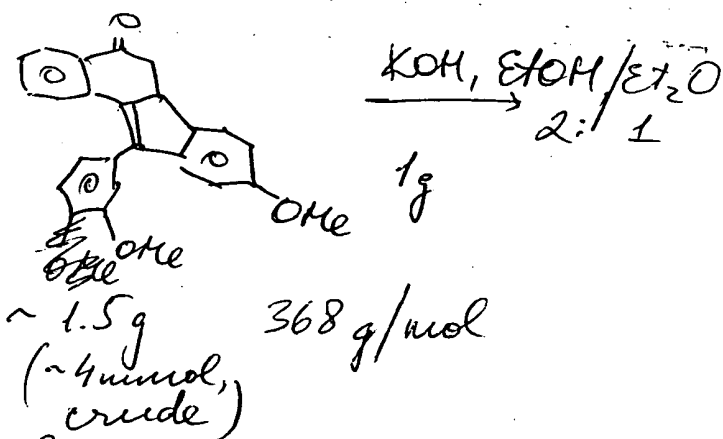 O
KOH, EtOH/Et₂O
2:1
1g
OMe
OMe
~ 1.5 g 368 g/mol
(~4mmol,
crude)